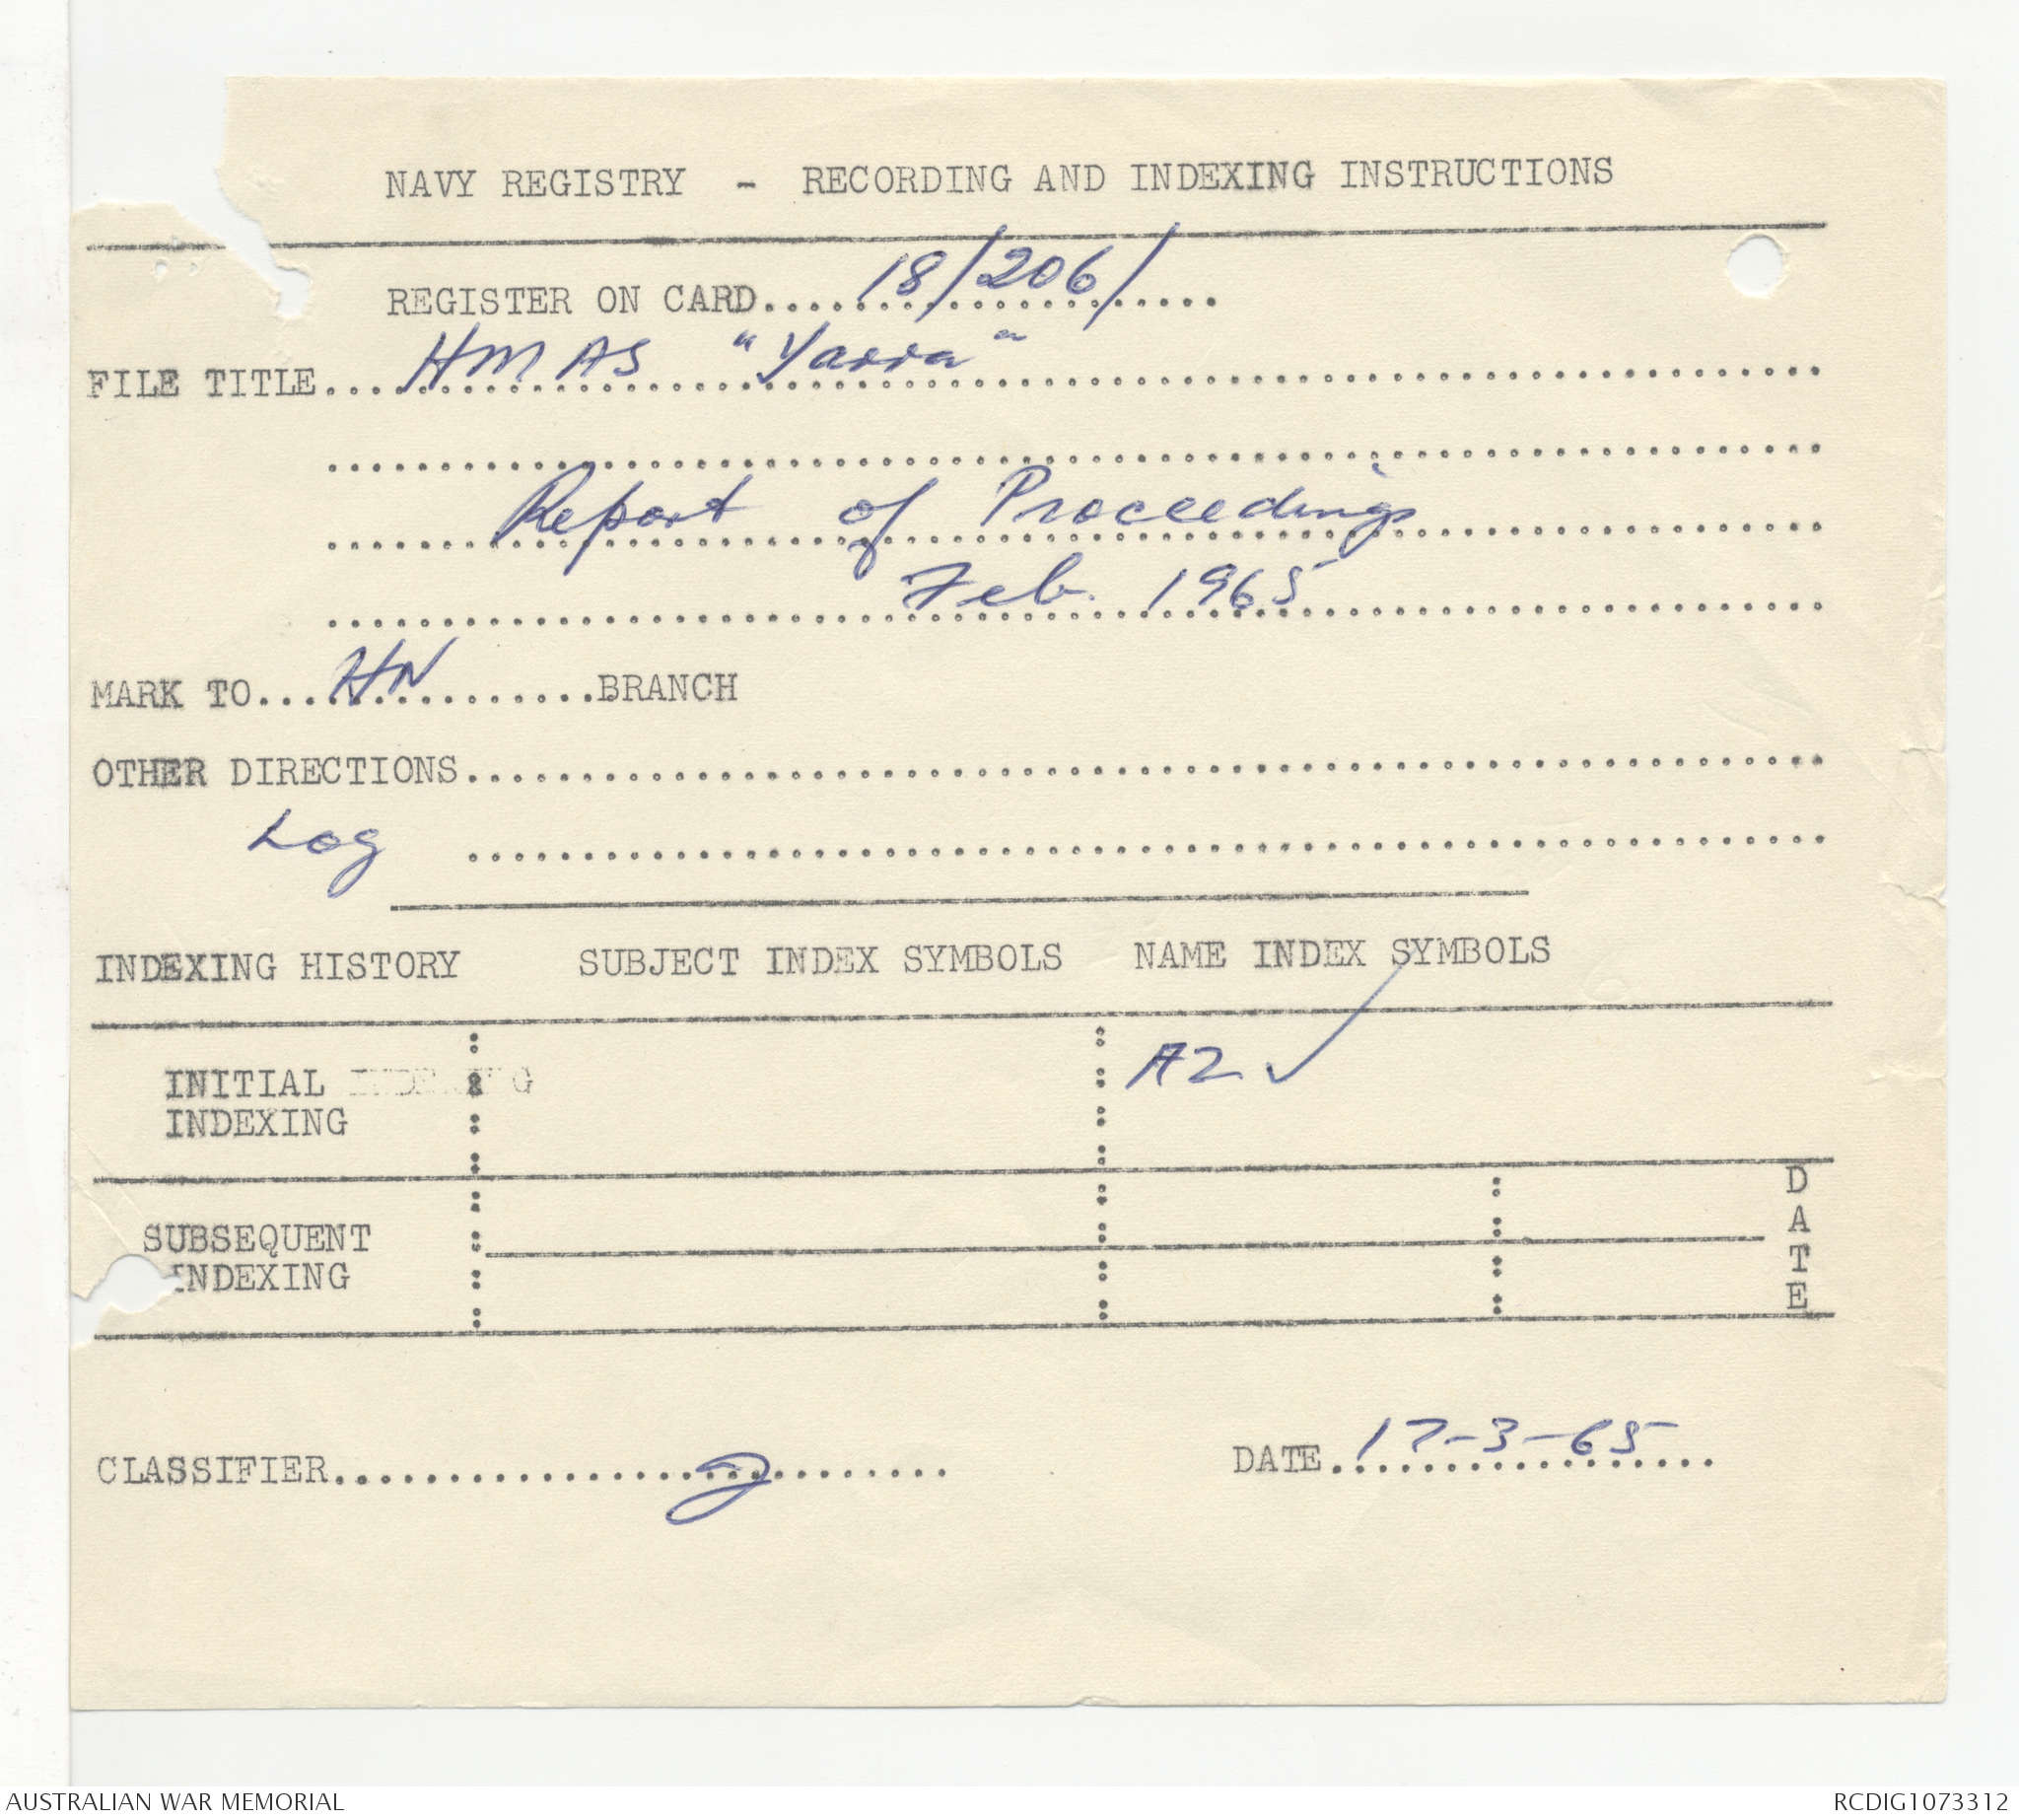 NAVY REGISTRY - RECORDING AND INDEXING INSTRUCTIONS
REGISTER ON CARD....18/206/....
FILE TITLE....HMAS "Yarra"....
Report of Proceedings
Feb. 1965
MARK TO...HN..........BRANCH
OTHER DIRECTIONS....
Log
INDEXING HISTORY SUBJECT INDEX SYMBOLS NAME INDEX SYMBOLS
INITIAL INDEXING A2 ✓
INDEXING
SUBSEQUENT
INDEXING
DATE
CLASSIFIER.... DATE.17-3-65....
AUSTRALIAN WAR MEMORIAL RCDIG1073312